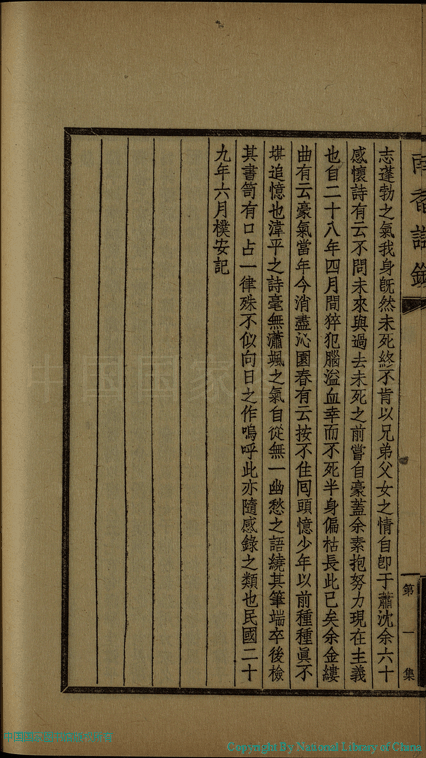 志蓬勃之氣我身既然未死終不肯以兄弟父女之情自卽于蕭沈余六十
感懷詩有云不問未來與過去未死之前嘗自豪蓋余素抱努力現在主義
也自二十八年四月間猝犯腦溢血幸而不死半身偏枯長此已矣余金縷
曲有云豪氣當年今消盡沁園春有云按不住囘頭憶少年以前種種眞不
堪追憶也湋平之詩毫無瀟颯之氣自從無一幽愁之語繞其筆端卒後檢
其書笥有口占一律殊不似向日之作嗚呼此亦隨感錄之類也民國二十
九年六月樸安記
第一集
Copyright By National Library of China